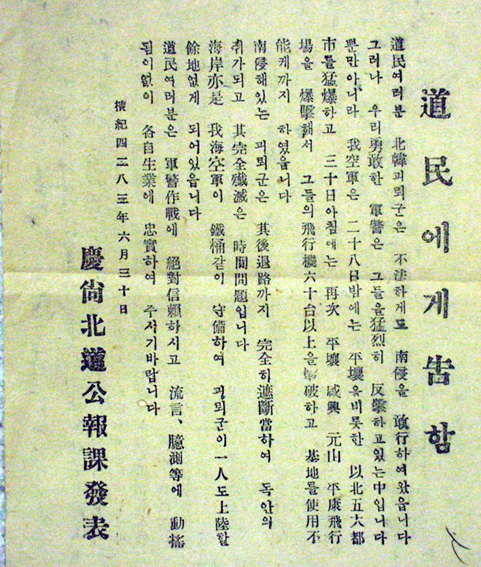 道民에게告함
道民여러분 北韓괴뢰군은 不法하게도 南侵을 敢行하여왔읍니다
그러나 우리勇敢한 軍警은 그들을猛烈히 反擊하고있는中입니다
뿐만아니라 我空軍은 二十八日밤에는 平壤을비롯한 以北五大都
市를猛爆하고 三十日아침에는 再次 平壤 咸興 元山 平康飛行
場을 爆擊해서 그들의飛行機六十台以上을擊破하고 基地를使用不
能케까지 하였읍니다
南侵해있는 괴뢰군은 其後退路까지 完全히遮斷當하여 독안의
쥐가되고 其完全殲滅은 時間問題입니다
海岸亦是 我海空軍이 鐵桶같이 守備하여 괴뢰군이一人도上陸할
餘地없게 되어있읍니다
道民여러분은 軍警作戰에 絕對信賴하시고 流言、臆測等에 動搖
됨이없이 各自生業에 忠實하여 주시기바랍니다
檀紀四二八三年六月三十日
慶尙北道公報課發表